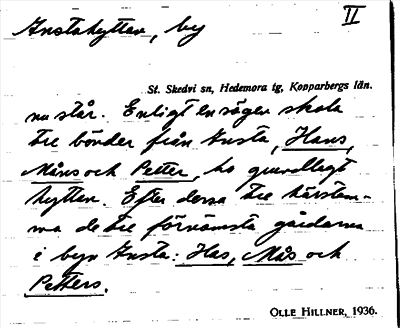 Anstahyttan, by II
St. Skedvi sn, Hedemora tg, Kopparbergs län.
nu står. Enligt en sägen skola
tre bönder från Ansta, Hans,
Måns och Petter, ha grundlagt
hyttan. Efter dessa tre härstam-
ma de tre förnämsta gårdarna
i byn Ansta: Has, Mås och
Petters.
OLLE HILLNER, 1936.